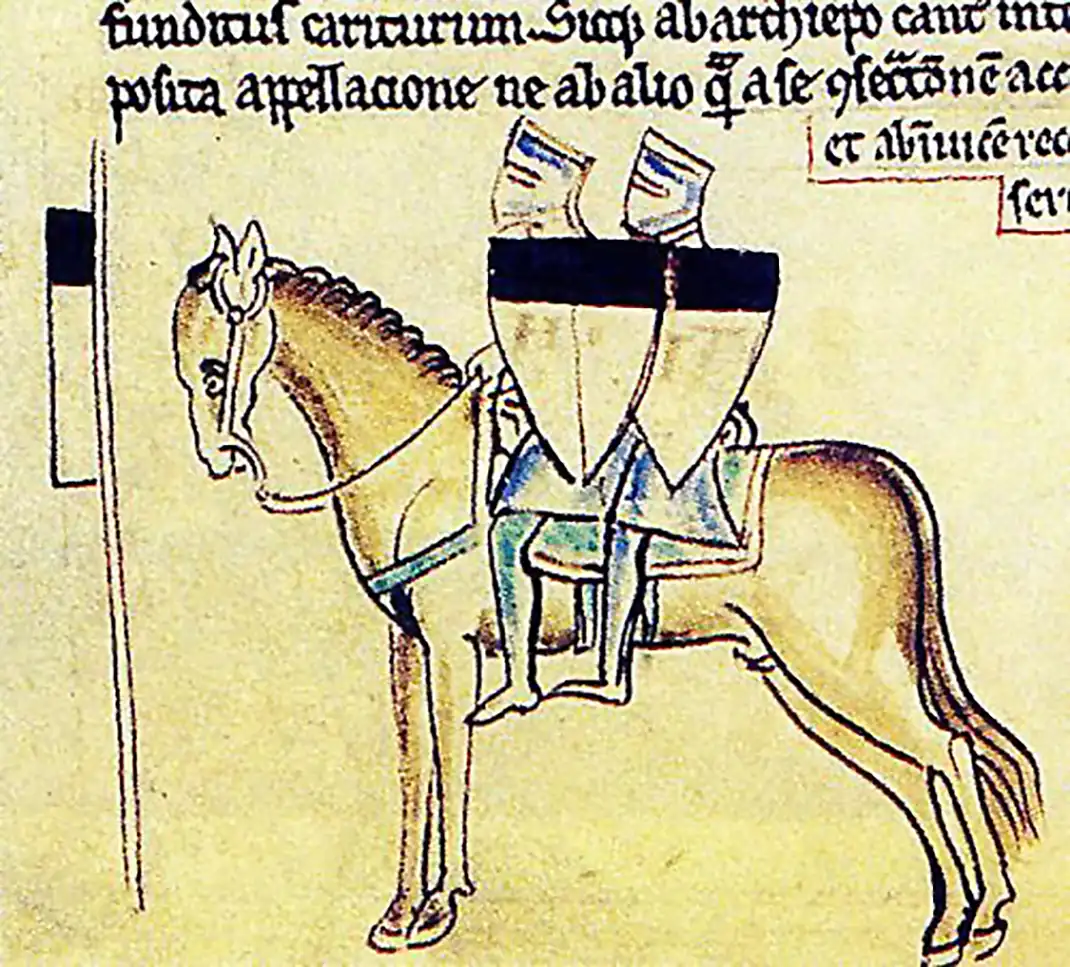 funditus cariturum. Sicq; ab archiep̄o cant̄ int
posita appellacione ne ab alio q̄ͣ a se ꝯsec̄cōnē acc
et ab īuicē rec